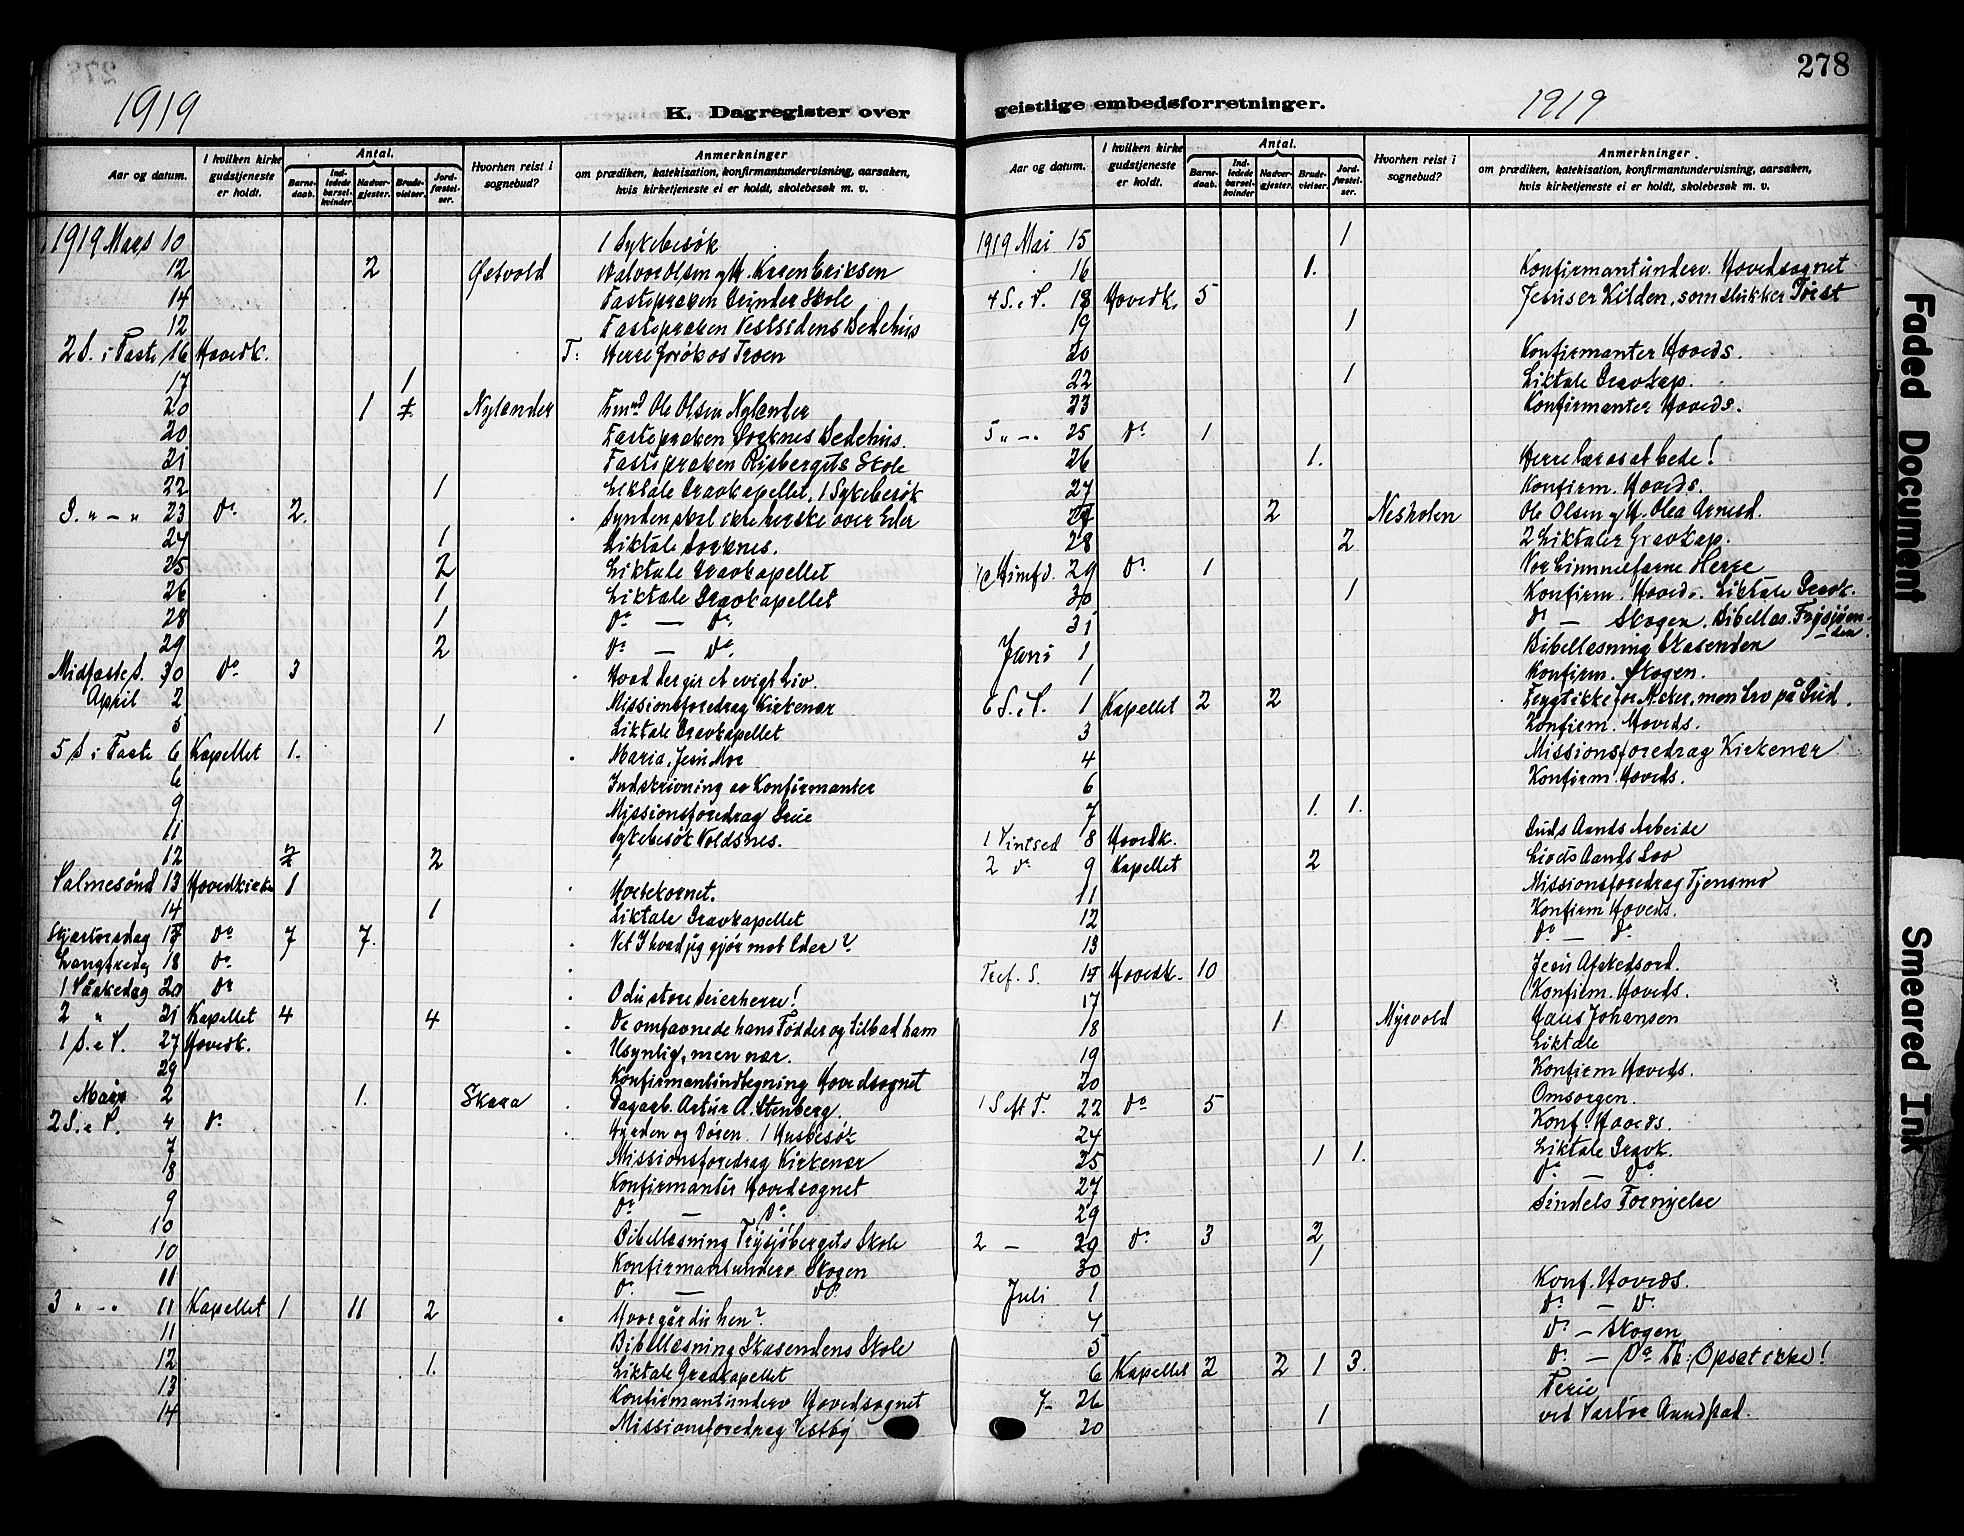 278
1919
K. Dagregister over
Aar og datum.
I hvilken kirke gudstjeneste er holdt.
Antal.
Barnedaab.
Indledede barselkvinder.
Nadvergjester.
Brudevielser.
Jordfæstelser.
Hvorhen reist i sognebud?
Anmerkninger
om prædiken, katekisation, konfirmantundervisning, aarsaken,
hvis kirketjeneste ei er holdt, skolebesøk m. v.
1919 Mars 10 1 Sykebesøk
12 2 Østvold Halvor Olsen og H. Karen Eriksen
14 Fastepræken Grinder Skole
12 Fastepræken Vestsidens Bedehus
2 S. i Faste 16 Hovedk. T: Herre forøk os Troen
17 1
20 1 Nylænder Ole Olsen Nylænder
20 Fastepræken Sorknes Bedehus.
21 Fastepræken Risbergets Skole
22 1 Liktale Gravkapellet, 1 Sykebesøk
3. " — " 23 do 2. Synden skal ikke herske over Eder
24 1 Liktale Sorknes.
25 2 Liktale Gravkapellet
26 1 Liktale Gravkapellet
28 1 do — do
29 2 do — do
Midfaste S. 30 do 3 Hvad der gir et evigt Liv.
April 2 Missionsforedrag Kirkenær
5 1 Liktale Gravkapellet
5 S i Faste 6 Kapellet 1. Maria, Jesu Mor
6 Indskrivning av Konfirmanter
9 Missionsforedrag Grue
11 Sykebesøk Voldsnes.
12 2 2
Palmesønd 13 Hovedkirken 1 Hvetekornet.
14 1 Liktale Gravkapellet
Skjærtorsdag 17 do 7 7. Vet I hvad jeg gjør mot Eder?
Langfredag 18 do
1 Påskedag 20 do O du store seierherre!
2 " 21 Kapellet 4 4 De omfavnede hans Fødder og tilbad ham
1 S. e P. 27 Hovedk. Usynlig, men nær.
29 Konfirmantindtegning Hovedsognet
2 1. Skara Dagarb. Artur A. Stenberg.
2 S. e P. 4 do Hyrden og Døren. 1 Husbesøk
7 Missionsforedrag Kirkenær
8 Konfirmanter Hovedsognet
9 do — do
10 Bibellæsning Frysjøbergets Skole
10 Konfirmantunderv. Skogen
11 do — do
3 " — " 11 Kapellet 1 11 2 Hvor går du hen?
11 Bibellæsning Skasendens Skole
12 1. Liktale Gravkapellet
13 Konfirmantunderv Hovedsognet
14 Missionsforedrag Vestby
geistlige embedsforretninger.
1919
Aar og datum.
I hvilken kirke gudstjeneste er holdt.
Antal.
Barnedaab.
Indledede barselkvinder.
Nadvergjester.
Brudevielser.
Jordfæstelser.
Hvorhen reist i sognebud?
Anmerkninger.
om prædiken, katekisation, konfirmantundervisning, aarsaken,
hvis kirketjeneste ei er holdt, skolebesøk m. v.
1919 Mai 15 1
16 1. Konfirmantunderv. Hovedsognet
4 S. e P. 18 Hovedk. 5 Jesus er Kilden, som slukker Tørst
19 1
20 Konfirmanter Hoveds.
22 1 Liktale Gravkap.
23 Konfirmanter Hoveds.
5 " — " 25 do 1
26 1. Herre lær os at bede!
27 Konfirm. Hoveds.
27 2 Nesholen Ole Olsen og H. Olea Arnesd.
28 2 2 Liktaler Gravkap.
Himfd. 29 do 1 Vor himmelfarne Herre
30 1 Konfirm. Hoveds. Liktale Gravk.
31 do — Skogen. Bibellæs. Frysjøenden.
Juni 1 Bibellæsning Skasenden
1 Konfirm. Skogen.
6 S. e P. 1 Kapellet 2 2 Frygt ikke for Mennesker, men tro på Gud.
3 Konfirm. Hoveds.
4 Missionsforedrag Kirkenær
6 Konfirm. Hoveds.
7 1. 1.
1 Pintsed 8 Hovedk. Guds Aands Arbeide
2 do 9 Kapellet 2 Livets Aands Lov
11 Missionsforedrag Tjensmo
12 Konfirm Hoveds.
13 do — do
Tref. S. 15 Hovedk. 10 Jesu Afskedsord.
17 Konfirm. Hoveds.
18 1. Myrvold Johansen
19 Liktale
20 Konfirm Hoveds.
1 S eft T. 22 do 5 Omsorgen.
24 Konf. Hoveds.
25 1 1. Liktale Gravk.
27 do — do
29 Sindets Fornyelse
2 — 29 do 3 2
30 1
Juli 1 Konf. Hoveds.
4 do — do
5 do — Skogen
6 Kapellet 2 2 1 3. do — do Th: Opsæt ikke!
7 - 26 Ferie
20 1 ved
Faded Document
Smeared Ink